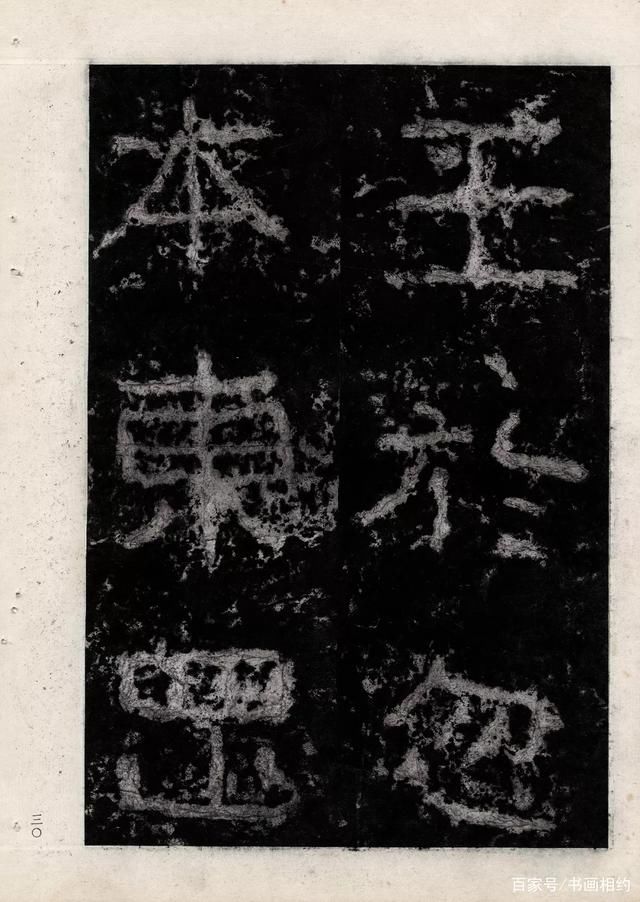 王於忽
本東罡
三〇
百家号/书画相约